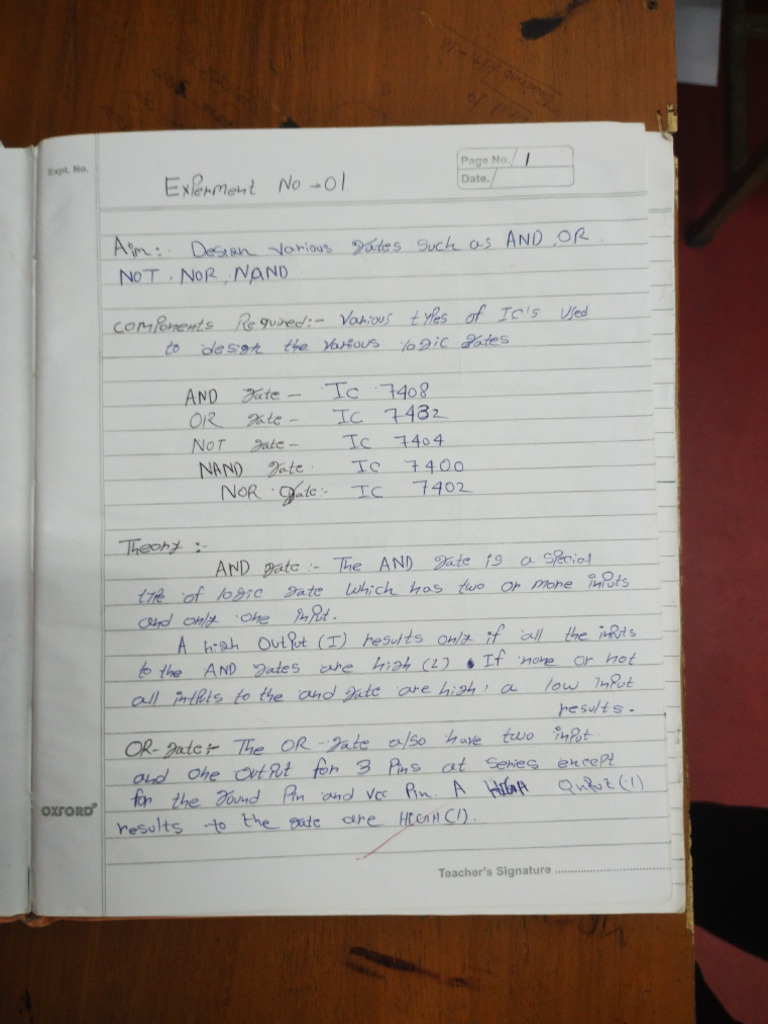 Expt. No.
Page No. 1
Date.
Experment No → 01
Aim:- Design various gates such as AND, OR
NOT, NOR, NAND
Components Required:- Various types of IC's used
to design the various logic gates
AND gate - IC 7408
OR gate - IC 7432
NOT gate - IC 7404
NAND gate. IC 7400
NOR Gate:- IC 7402
Theory :-
AND gate :- The AND gate is a special
type of logic gate which has two or more inputs
and only one input.
A high output (I) results only if all the inputs
to the AND gates are high (1). If none or not
all intputs to the and gate are high, a low input
results.
OR-gate:- The OR-gate also have two input
and one output for 3 pins at series except
for the and Vcc pin. A HIGH (1)
results to the gate are HIGH (1).
OXFORD
Teacher's Signature